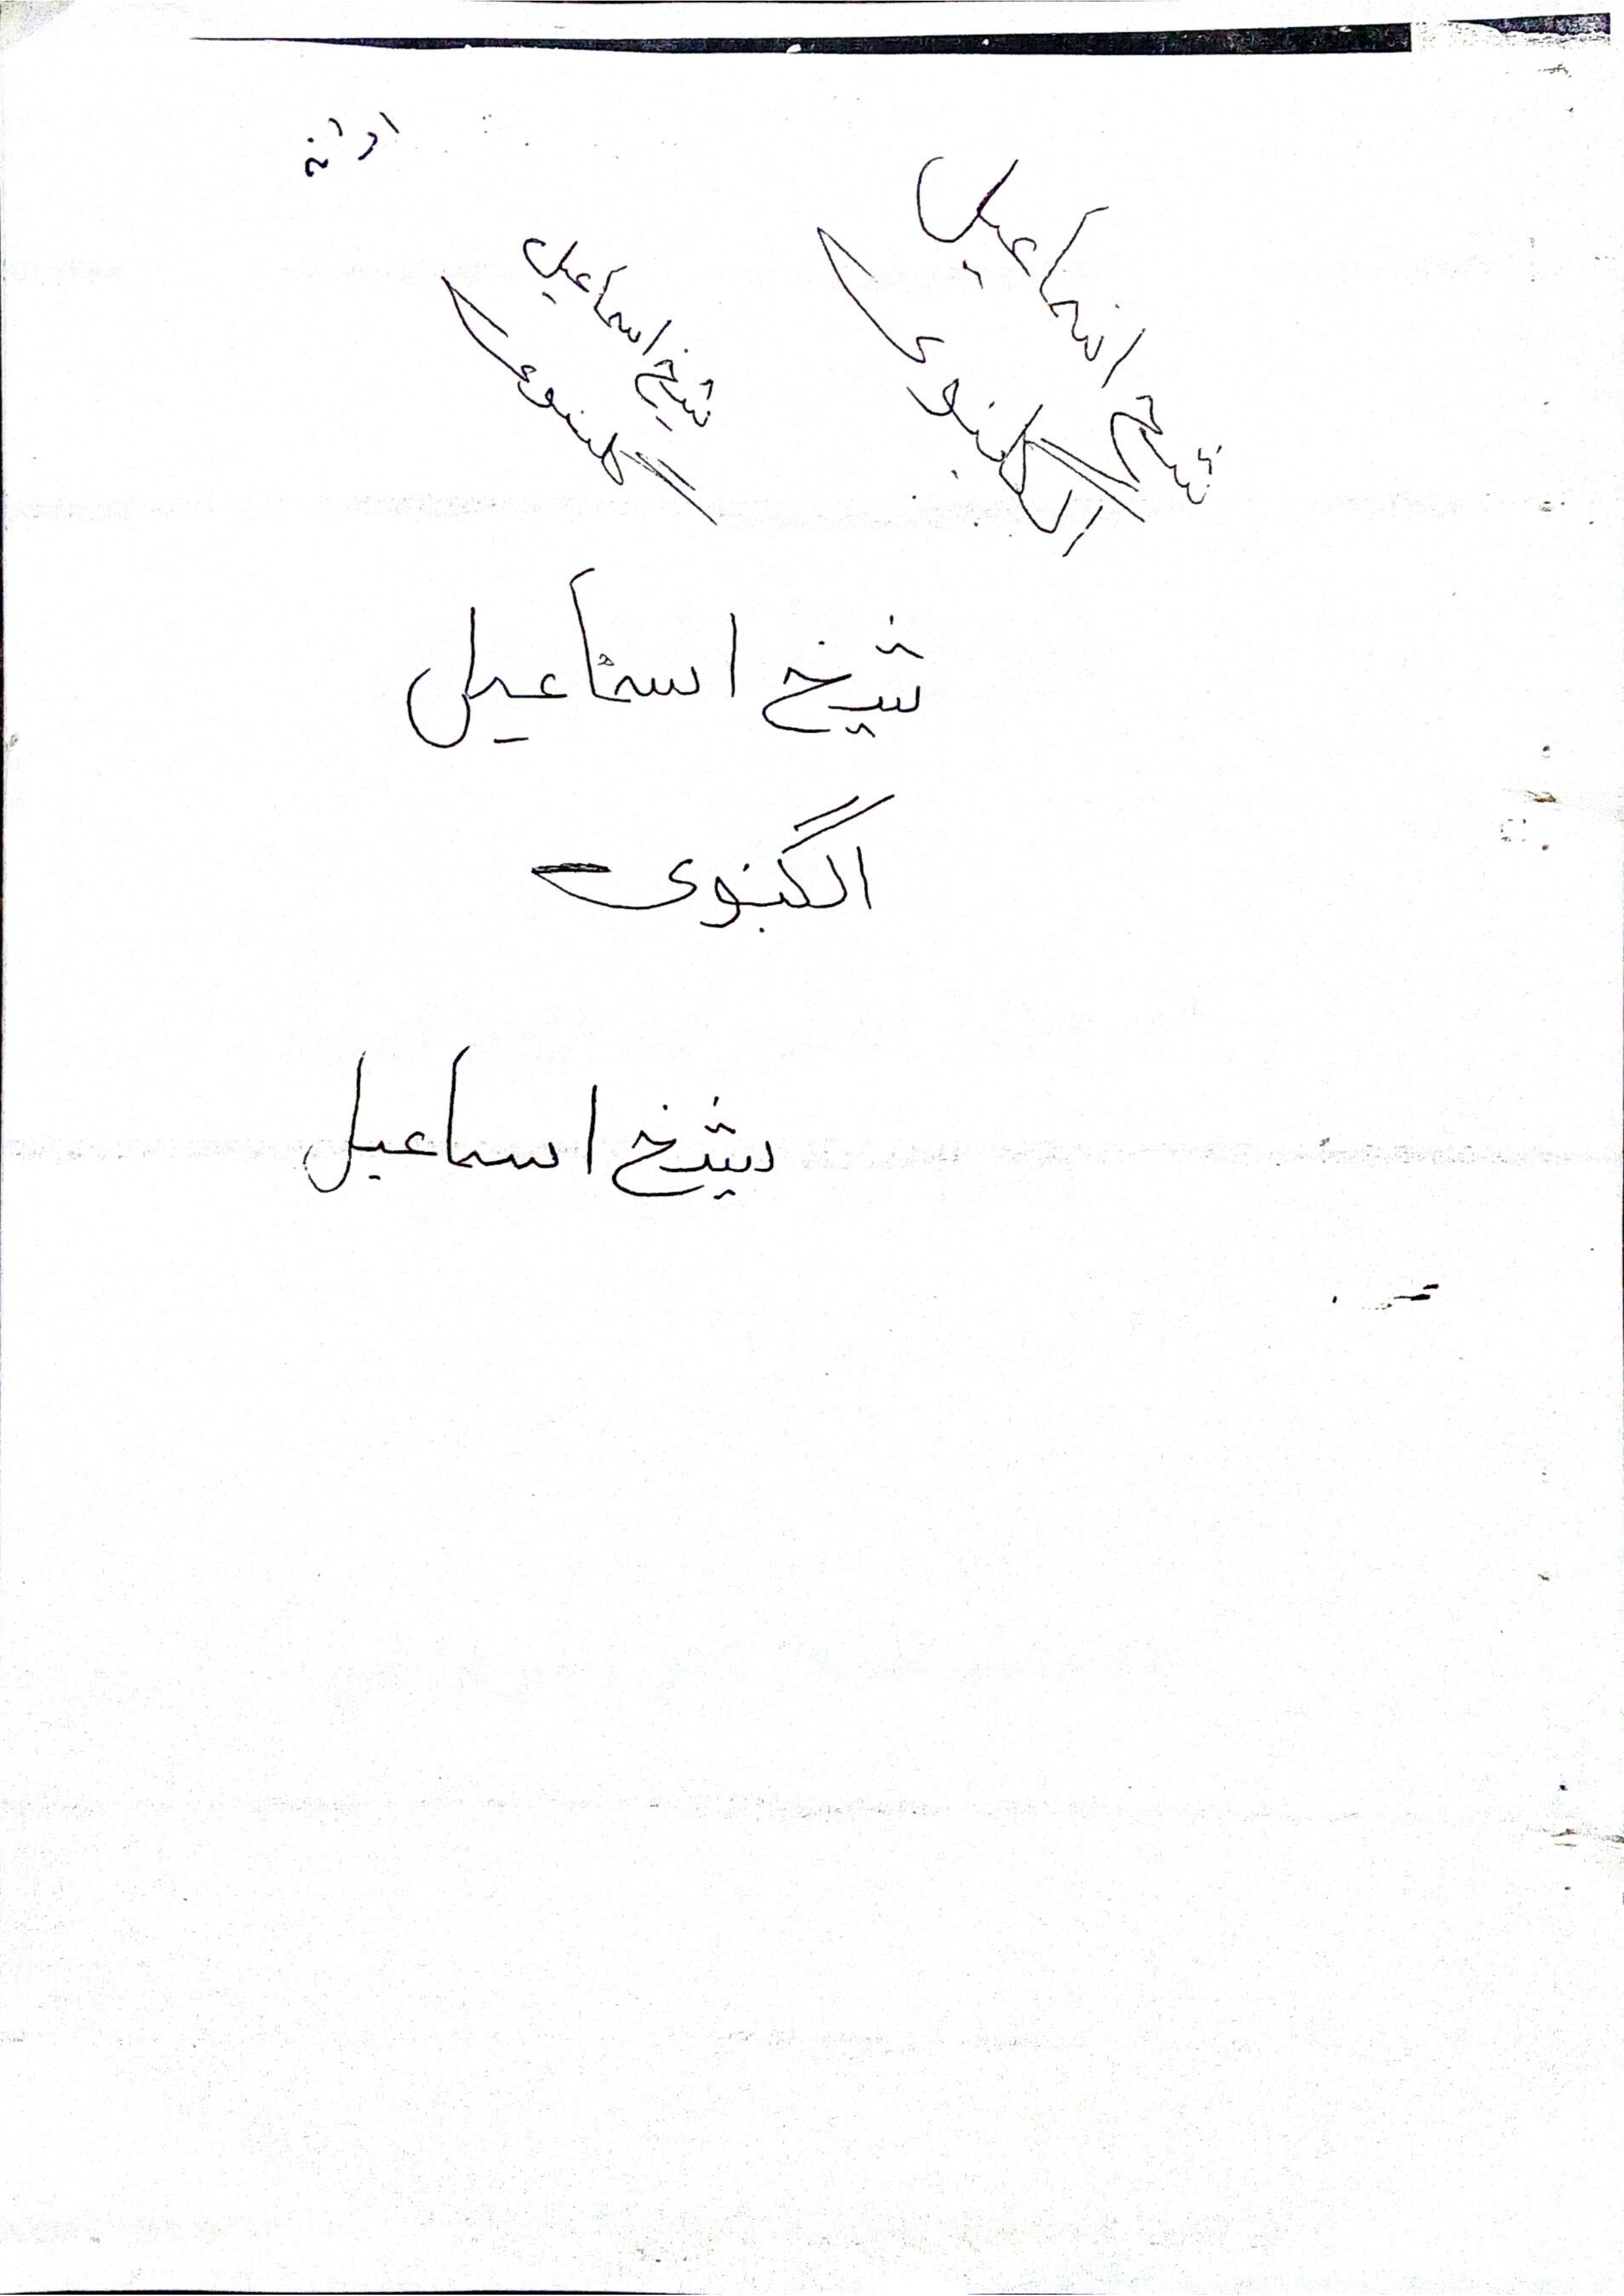 شيخ اسماعيل
الگبنوى
شيخ اسماعيل
الگبنوى
شيخ اسماعيل
الگبنوى
شيخ اسماعيل